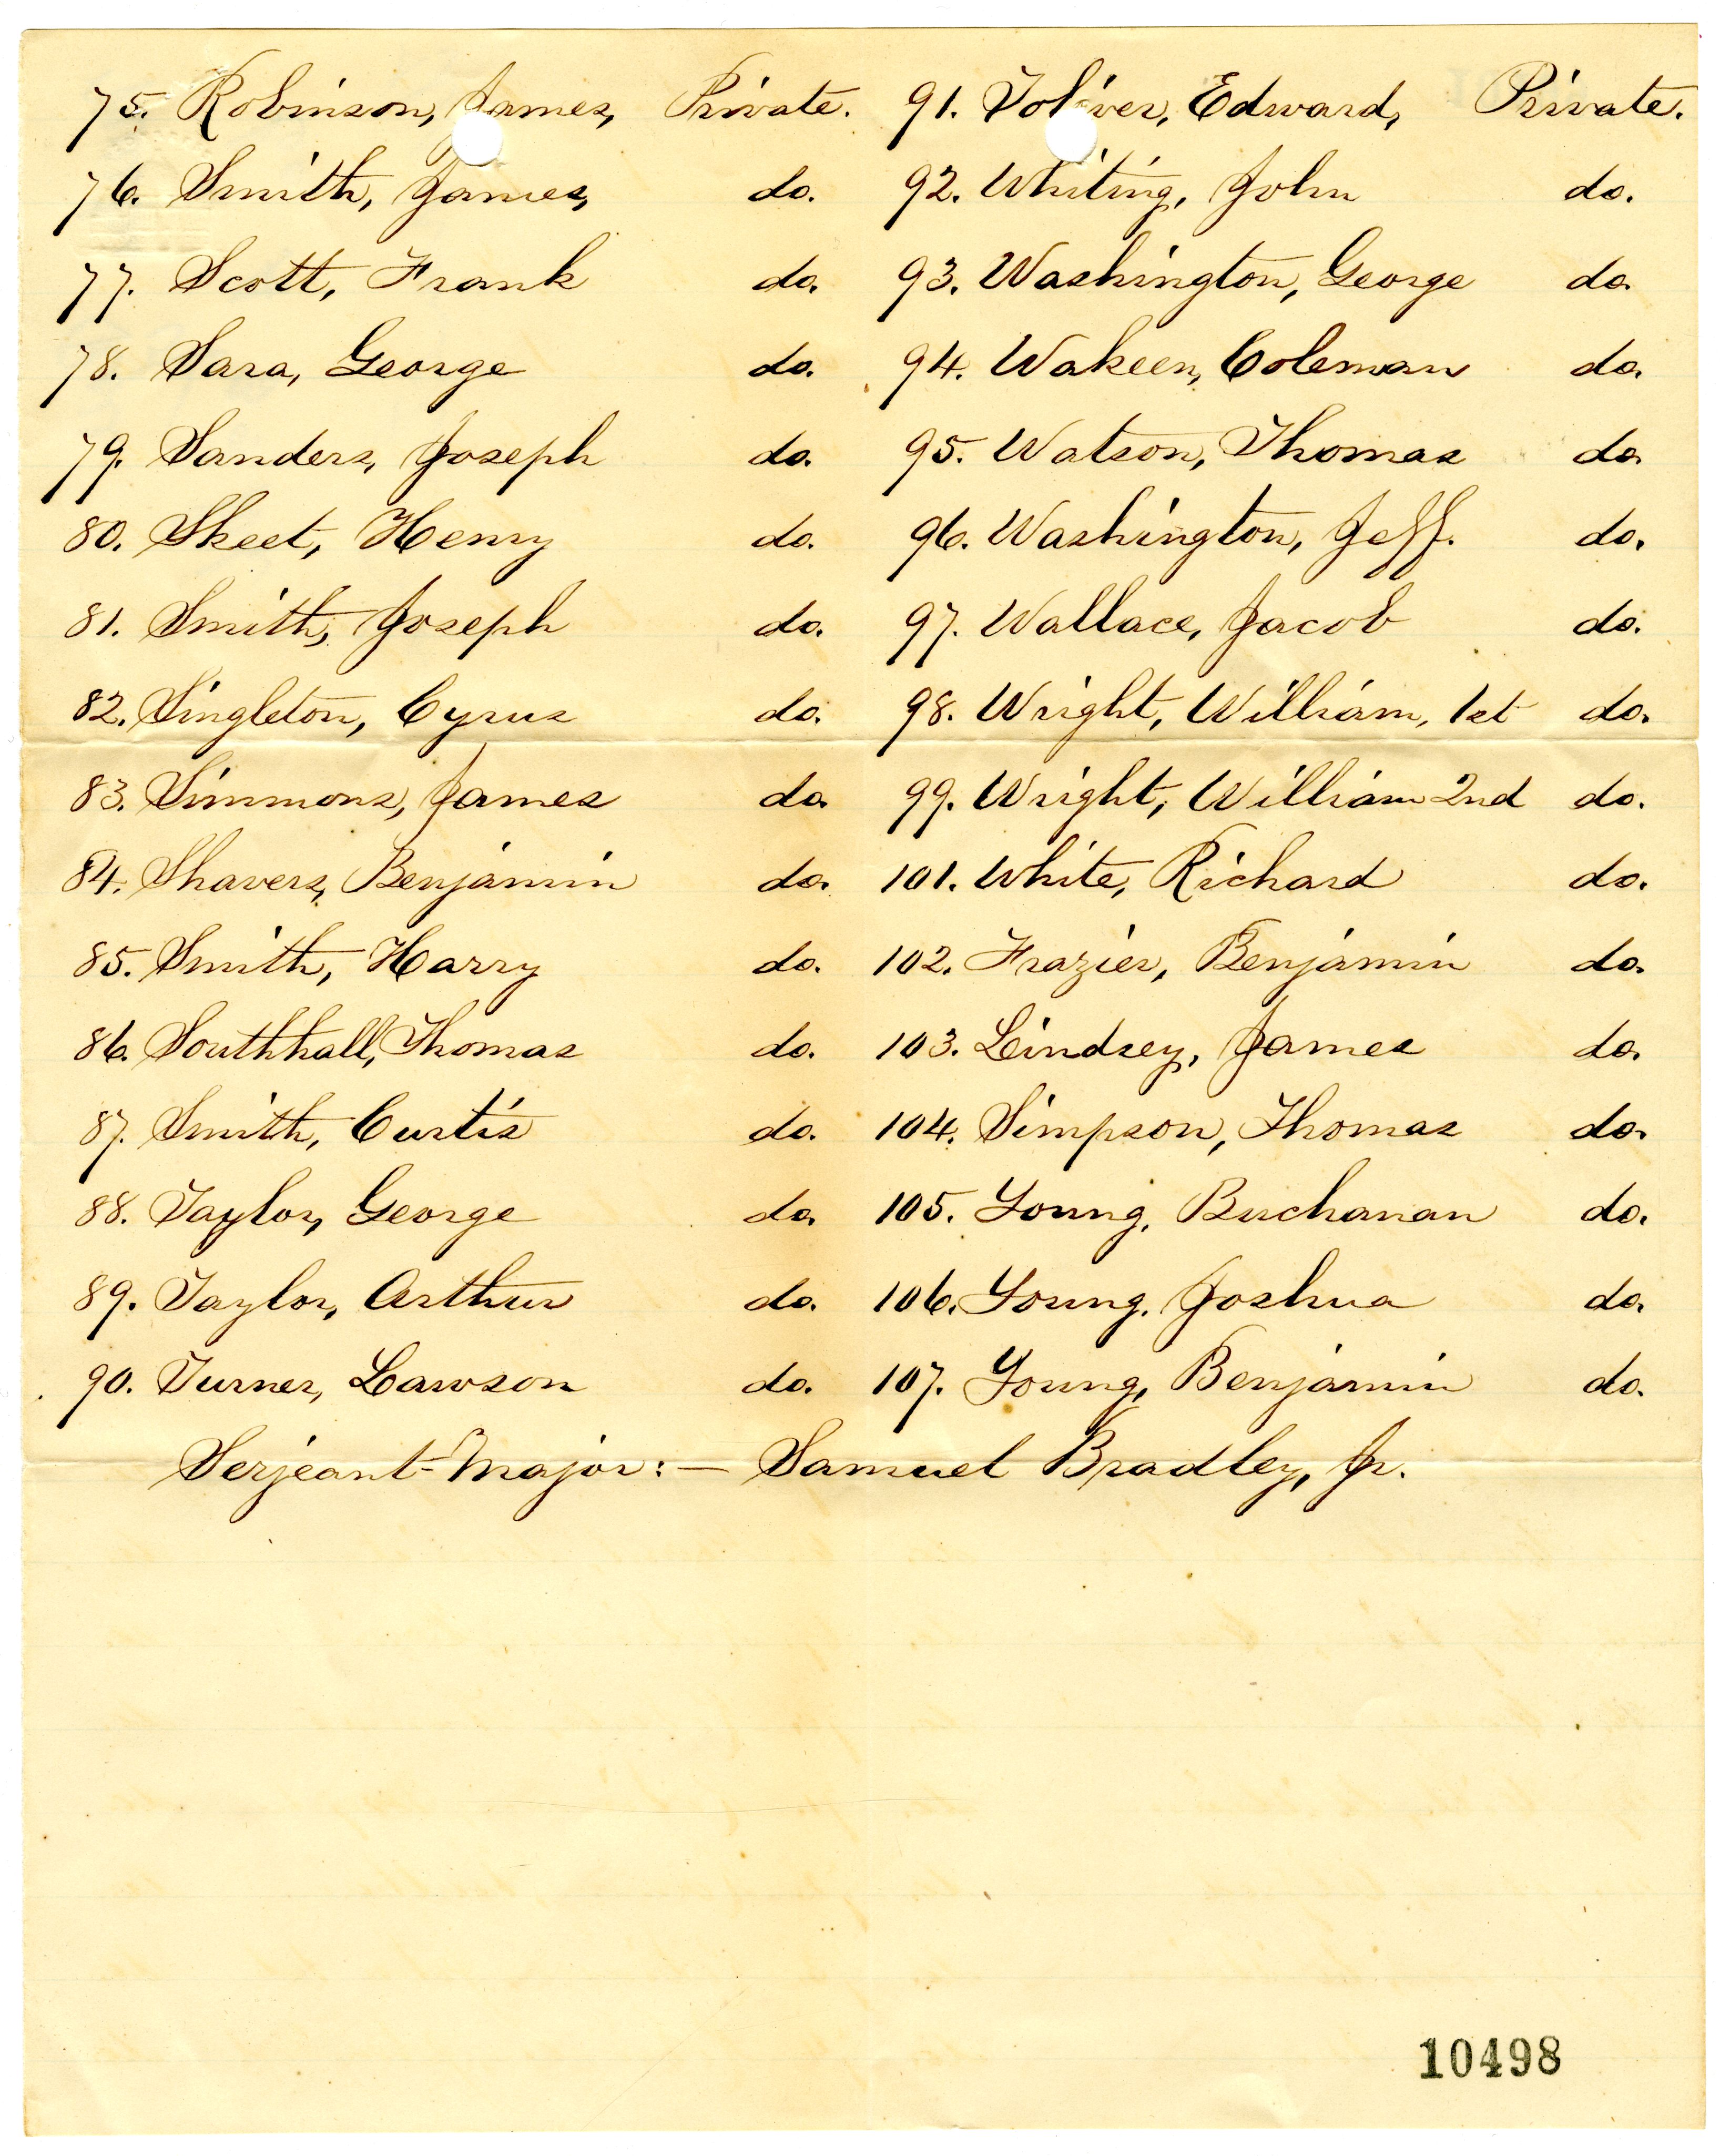 75. Robinson, James, Private.
76. Smith, James, do.
77. Scott, Frank do.
78. Sara, George do.
79. Sanders, Joseph do.
80. Skeet, Henry do.
81. Smith, Joseph do.
82. Singleton, Cyrus do.
83. Simmons, James do.
84. Shavers, Benjamin do.
85. Smith, Harry do.
86. Southhall, Thomas do.
87. Smith, Curtis do.
88. Taylor, George do.
89. Taylor, Arthur do.
90. Turner, Lawson do.
91. Toliver, Edward, Private.
92. Whiting, John do.
93. Washington, George do.
94. Wakeen, Coleman do.
95. Watson, Thomas do.
96. Washington, Jeff. do.
97. Wallace, Jacob do.
98. Wright, William, 1st do.
99. Wright, William 2nd do.
101. White, Richard do.
102. Frazier, Benjamin do.
103. Lindsey, James do.
104. Simpson, Thomas do.
105. Young, Buchanan do.
106. Young, Joshua do.
107. Young, Benjamin do.
Serjeant-Major:— Samuel Bradley, Jr.
10498